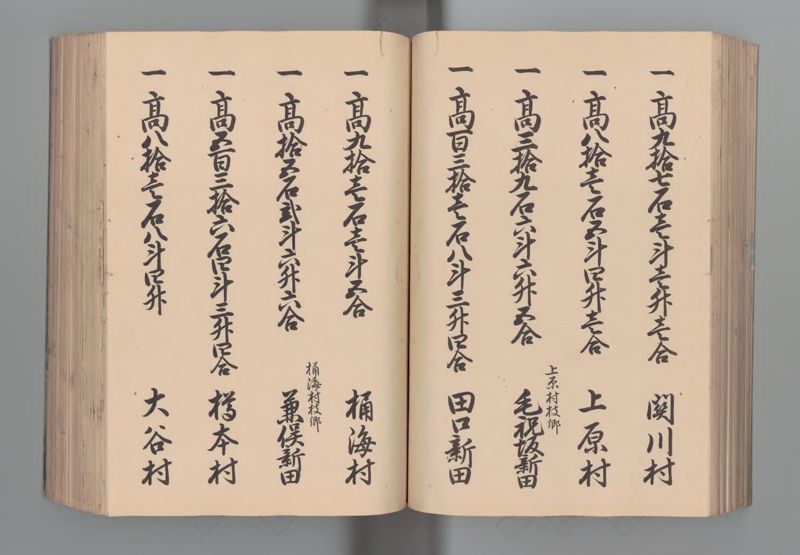 一 高九拾七石壱斗壱升壱合 関川村
一 高八拾壱石五斗四升壱合 上原村
上原村枝郷
一 高三拾九石六斗六升五合 毛祝坂新田
一 高百三拾壱石八斗三升四合 田口新田
一 高九拾壱石壱斗五合 桶海村
桶海村枝郷
一 高拾五石弐斗六升六合 兼俣新田
一 高五百三拾六石四斗三升四合 樽本村
一 高八拾壱石八斗四升 大谷村